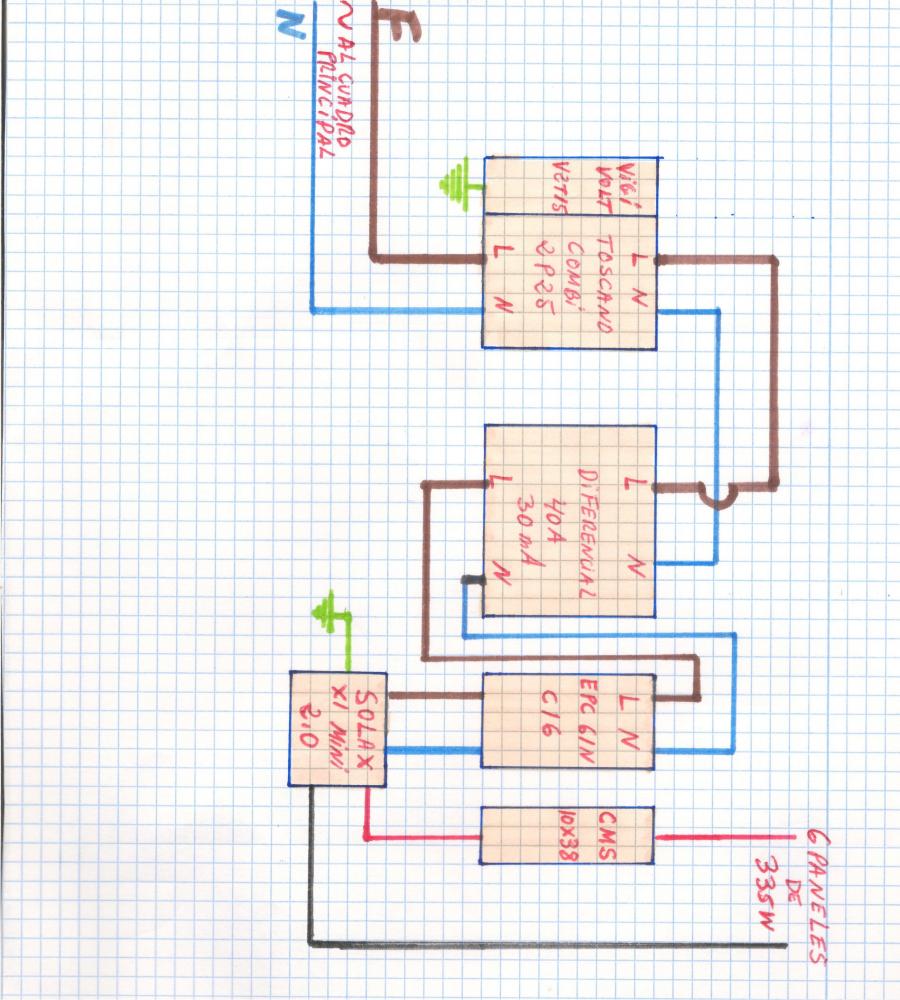 F
N
AL CUADRO
PRINCIPAL
VIGI
VOLT
V2T15
L N
TOSCANO
COMBI
2P25
L N
L N
DIFERENCIAL
40A
30 mA
L N
L N
EPC 61N
C16
SOLAX
X1 MINI
2.0
CMS
10X38
6 PANELES
DE
335W